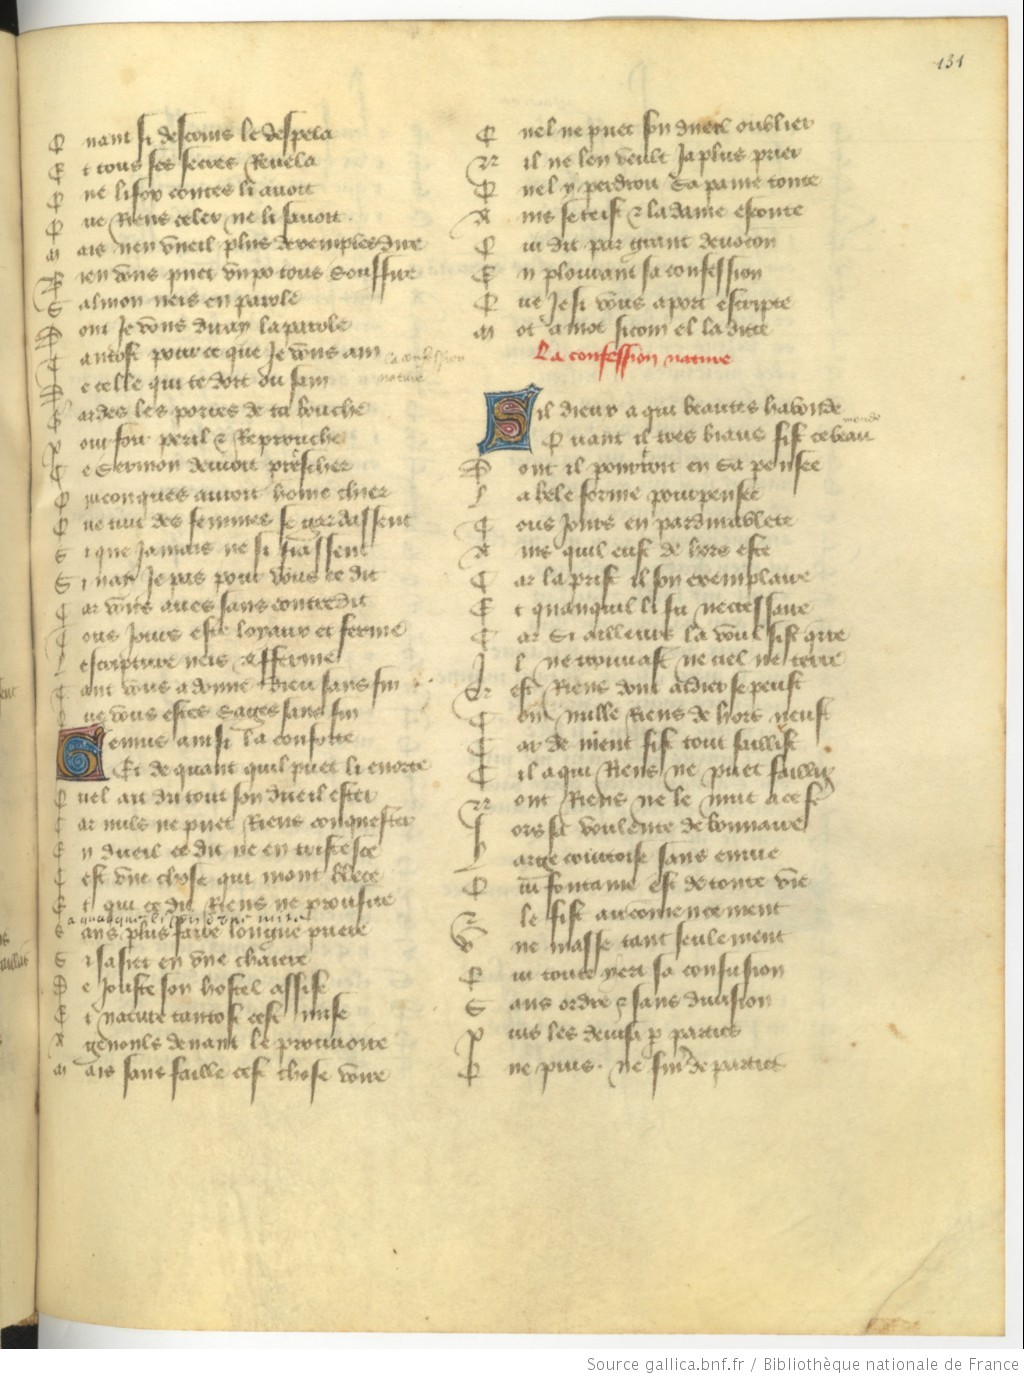 131
Q uant si descouv le despela
E t tous ses secres Revela
Q ue li fox contes li avoit
Q ue Riens celer ne li savoit
M ais nen vueil plus dexemples dire
B ien vous puet un po tous souffire
S almon neis en parole
D ont Je vous diray la parole
T antost pour ce que Je vous aim
D e celle qui te dort ou sain
G ardes les portes de ta bouche
P our fouir peril & Reprouche
C e Sermon devroit preschier
Q uiconques auroit home chier
Q ue tuit des femmes se gardassent
S i que Jamais ne si fiassent
S i nay Je pas pour vous ce dit
C ar vous aves sans contredit
T ous Jours este loyaux et ferme
L escripture neis afferme
T ant vous a donne Dieu sans fin
Q ue vous estes Sages sans fin
Genius ainsi la conforte
Et de quant quil puet li enorte
Q uel ait du tout son dueil ester
C ar nuls ne puet Riens conquester
E n dueil ce dit ne en tristesce
C est une chose qui mont blece
E t qui ce dit Riens ne proufite
S ans plus faire longue priere
S i sasiet en une chaiere
D e Jouste son hostel assise
E t nature tantost cest mise
A genouls devant le provoire
M ais sans faille cest chose voire
Q uel ne puet son dueil oublier
N il ne len veult Ja plus prier
Q uel y perdroit Sa paine toute
A ins se teist & la dame escoute
Q ui dit par grant devocon
E n plourant sa confession
Q ue Je si vous aport escripte
M ot a mot sicom el la dicte
La confession nature
la confession
nature
Sil dieux a qui beautes habonde
Quant il tres biaus fist ce beau
monde
D ont il pourtoit en Sa pensee
L a bele forme pourpensee
T ous Jours en pardurablete
A ins quil eust de hors este
C ar la prist il son exemplaire
E t quanquil li fu neccessaire
C ar Si ailleurs la voulsist querre
I l ne trouvast ne ciel ne terre
N est Riens dont aidier se peust
C om nulle Riens de hors neust
C ar de nient fist tout saillir
C il a qui Riens ne puet faillir
N ont Riens ne le mut a ce
F ors sa voulente debonnaire
L arge courtoise sans envie
Q ui fontaine est de toute vie
Z le fist au comencement
V ne masse tant seulement
Q ui toute yert sa confusion
S ans ordre & sans division
P uis les devisa p parties
Q ne puis ne fur de parties
Source gallica.bnf.fr / Bibliothèque nationale de France